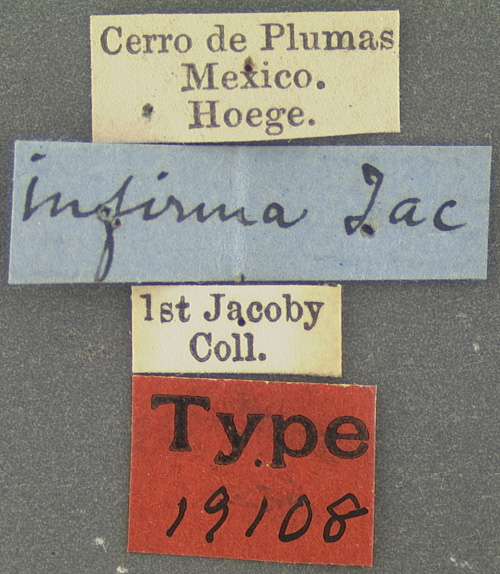 Cerro de Plumas
Mexico.
Hoege.
infirma Jac
1st Jacoby
Coll.
Type
19108